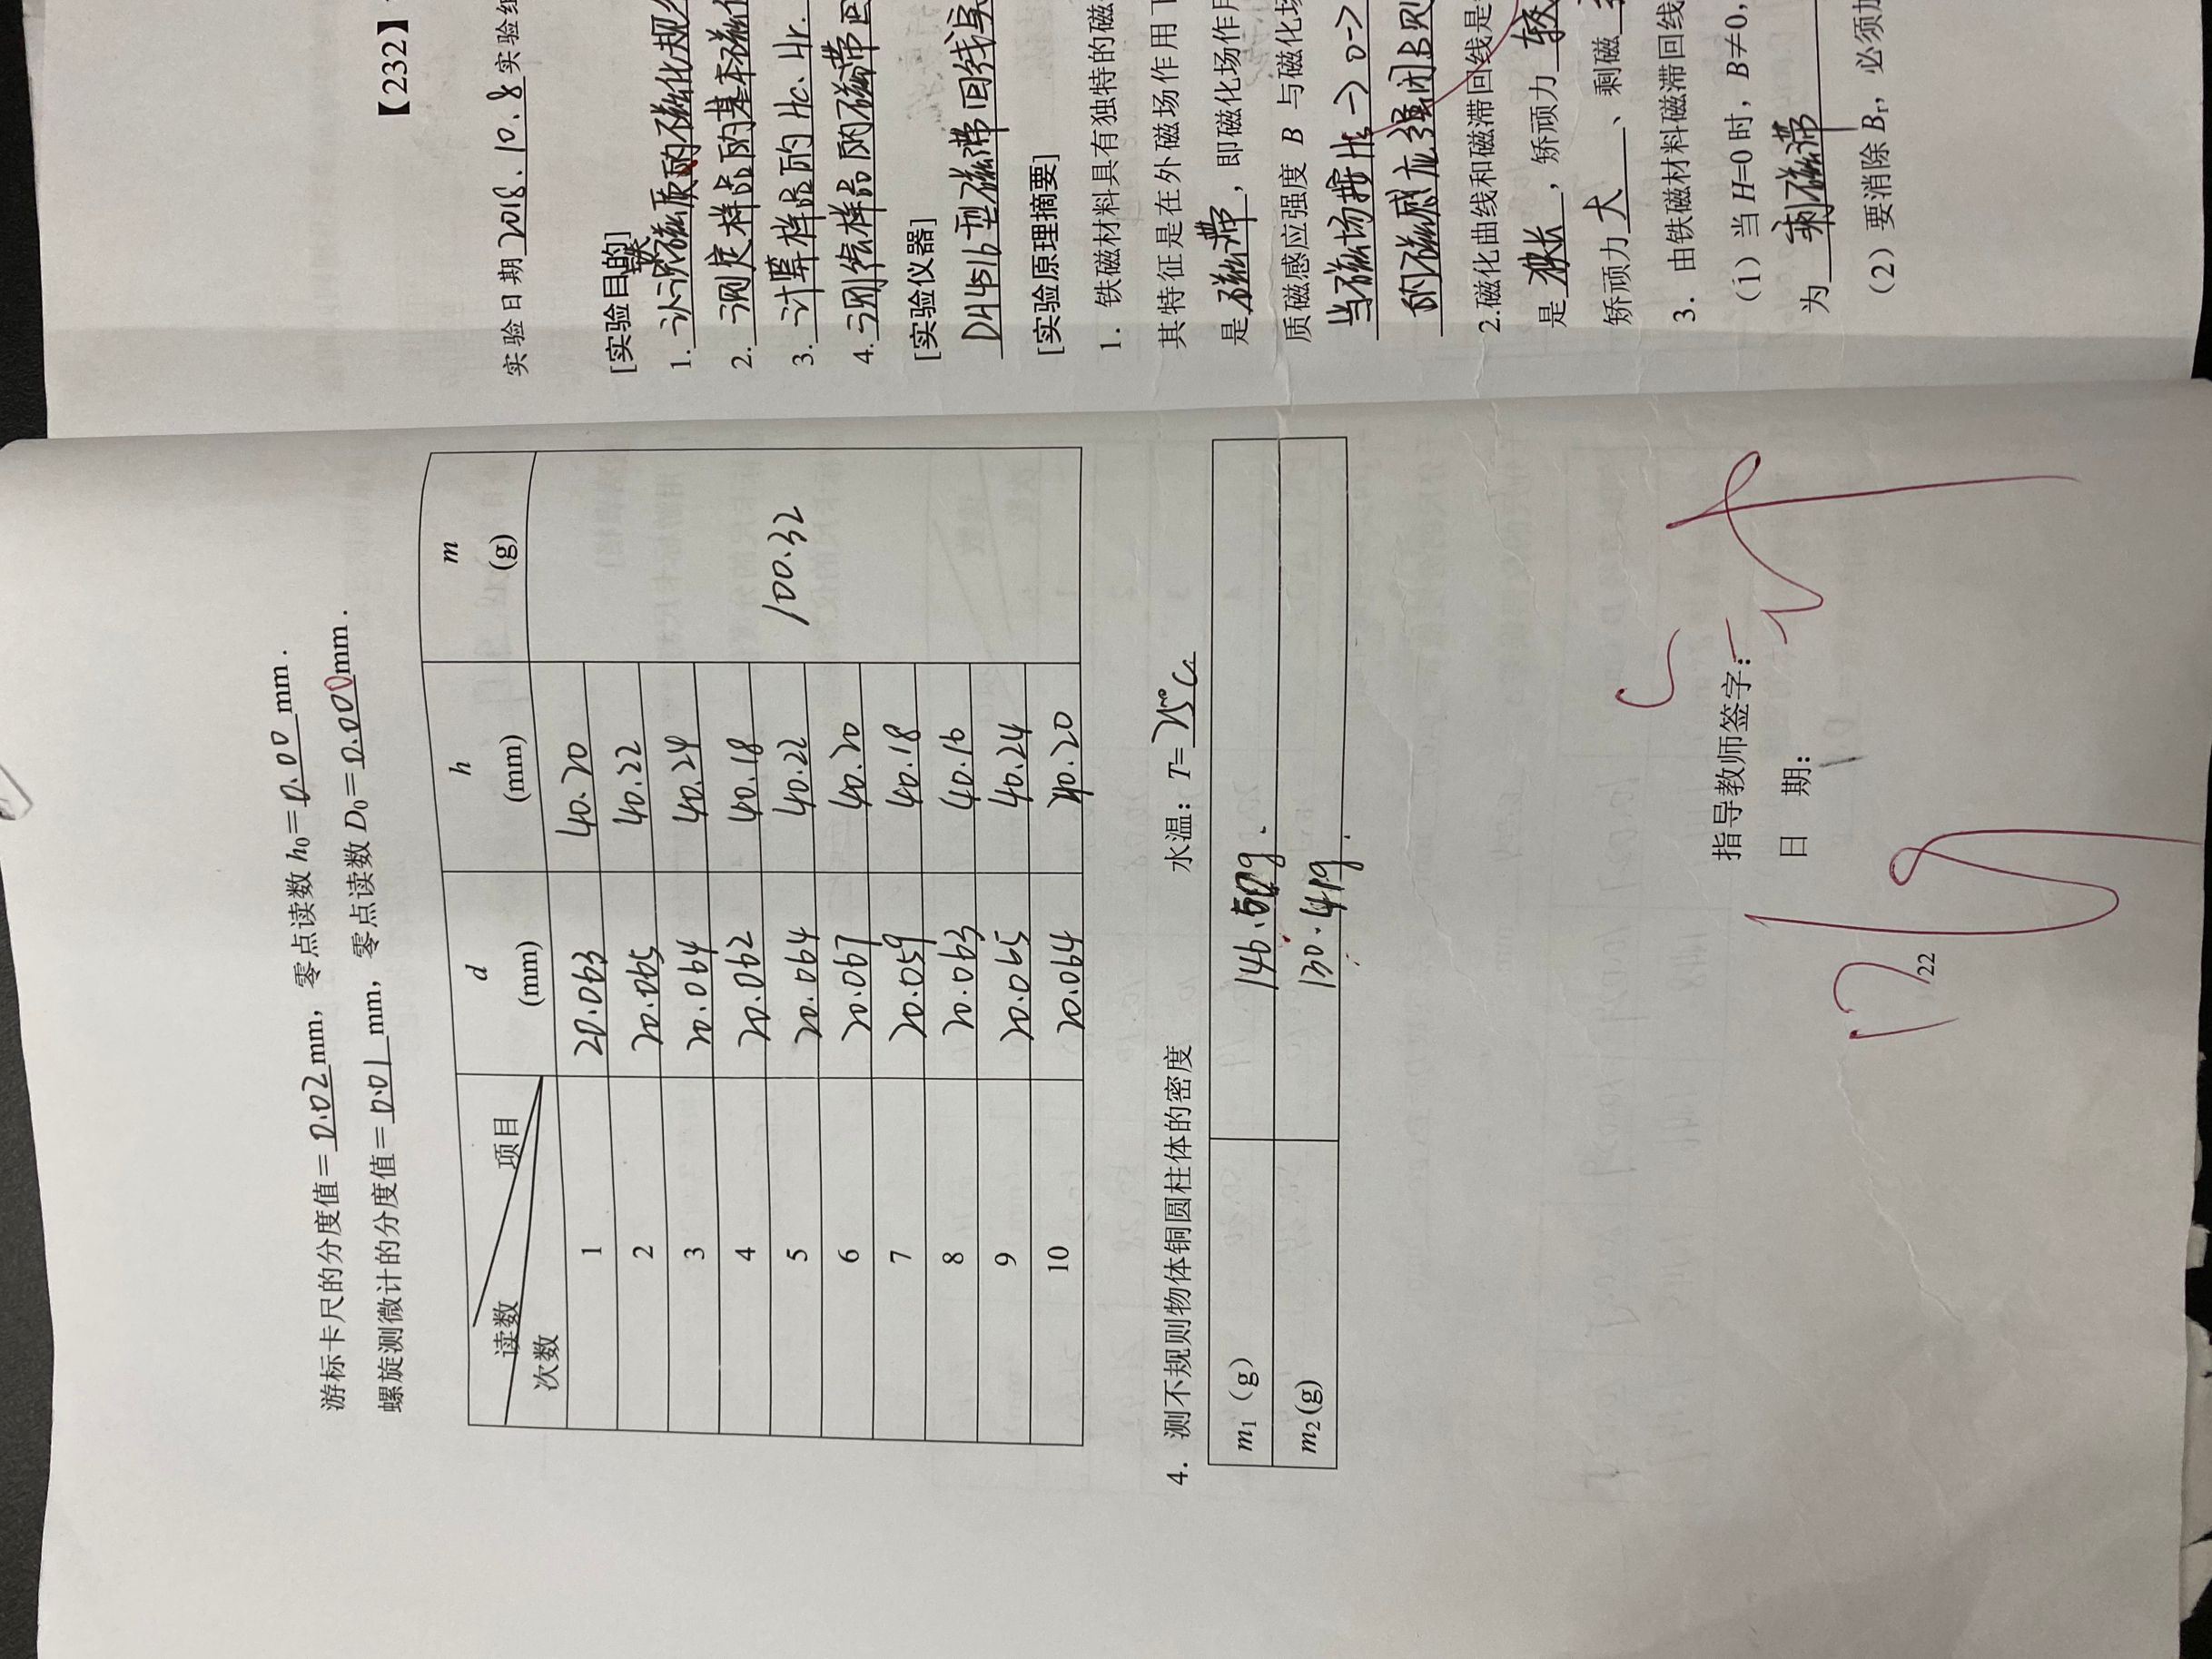 游标卡尺的分度值＝0.02mm，零点读数 h0＝0.00mm．
螺旋测微计的分度值＝0.01mm，零点读数 D0＝0.000mm．
读数 项目 次数 d (mm) h (mm) m (g)
1 20.063 40.20
2 20.065 40.22
3 20.064 40.24
4 20.062 40.18
5 20.064 40.22 100.32
6 20.067 40.20
7 20.059 40.18
8 20.063 40.16
9 20.065 40.24
10 20.064 40.20
4．测不规则物体铜圆柱体的密度 水温：T=25℃
m1（g）
m2 (g) 130.41g.
指导教师签字：
日 期：
22
【232】
实验日期2018.10.8实验组
[实验目的]
1. 认识铁磁质的磁化规
2. 测定样品的基本磁化
3. 计算样品的Hc.Hr.
4. 测绘样品的磁滞回
[实验仪器]
DH4516型磁滞回线实
[实验原理摘要]
1．铁磁材料具有独特的磁
其特征是在外磁场作用下
是磁滞，即磁化场作用
质磁感应强度 B 与磁化场
当磁场按Hs→0→
的磁感应强 B则
2.磁化曲线和磁滞回线是
是狭长，矫顽力较
矫顽力大、剩磁
3．由铁磁材料磁滞回线
（1）当 H=0 时，B≠0，
为剩磁滞
（2）要消除 Br，必须加